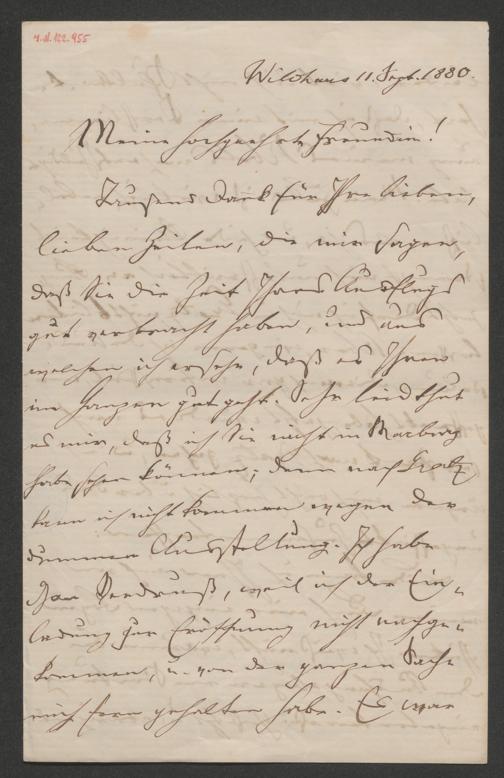 I.N. 122.955
Wildhaus 11. Sept. 1880.
Meine hochgeehrte Freundin!
Tausend Dank für Ihre lieben,
lieben Zeilen, die mir sagen,
daß Sie die Zeit Ihres Ausflugs
gut verbracht haben, und aus
welchen ich ersehe, daß es Ihnen
im Ganzen gut geht. Sehr leid thut
es mir, daß ich Sie nicht in Marburg
habe sehen können; denn nach Gratz
kann ich nicht kommen wegen der
dummen Ausstellung. Ich habe
Verdruß, weil ich der Ein-
ladung zur Eröffnung nicht nachge-
kommen, u. von der ganzen Sache
mich fern gehalten habe. Es war